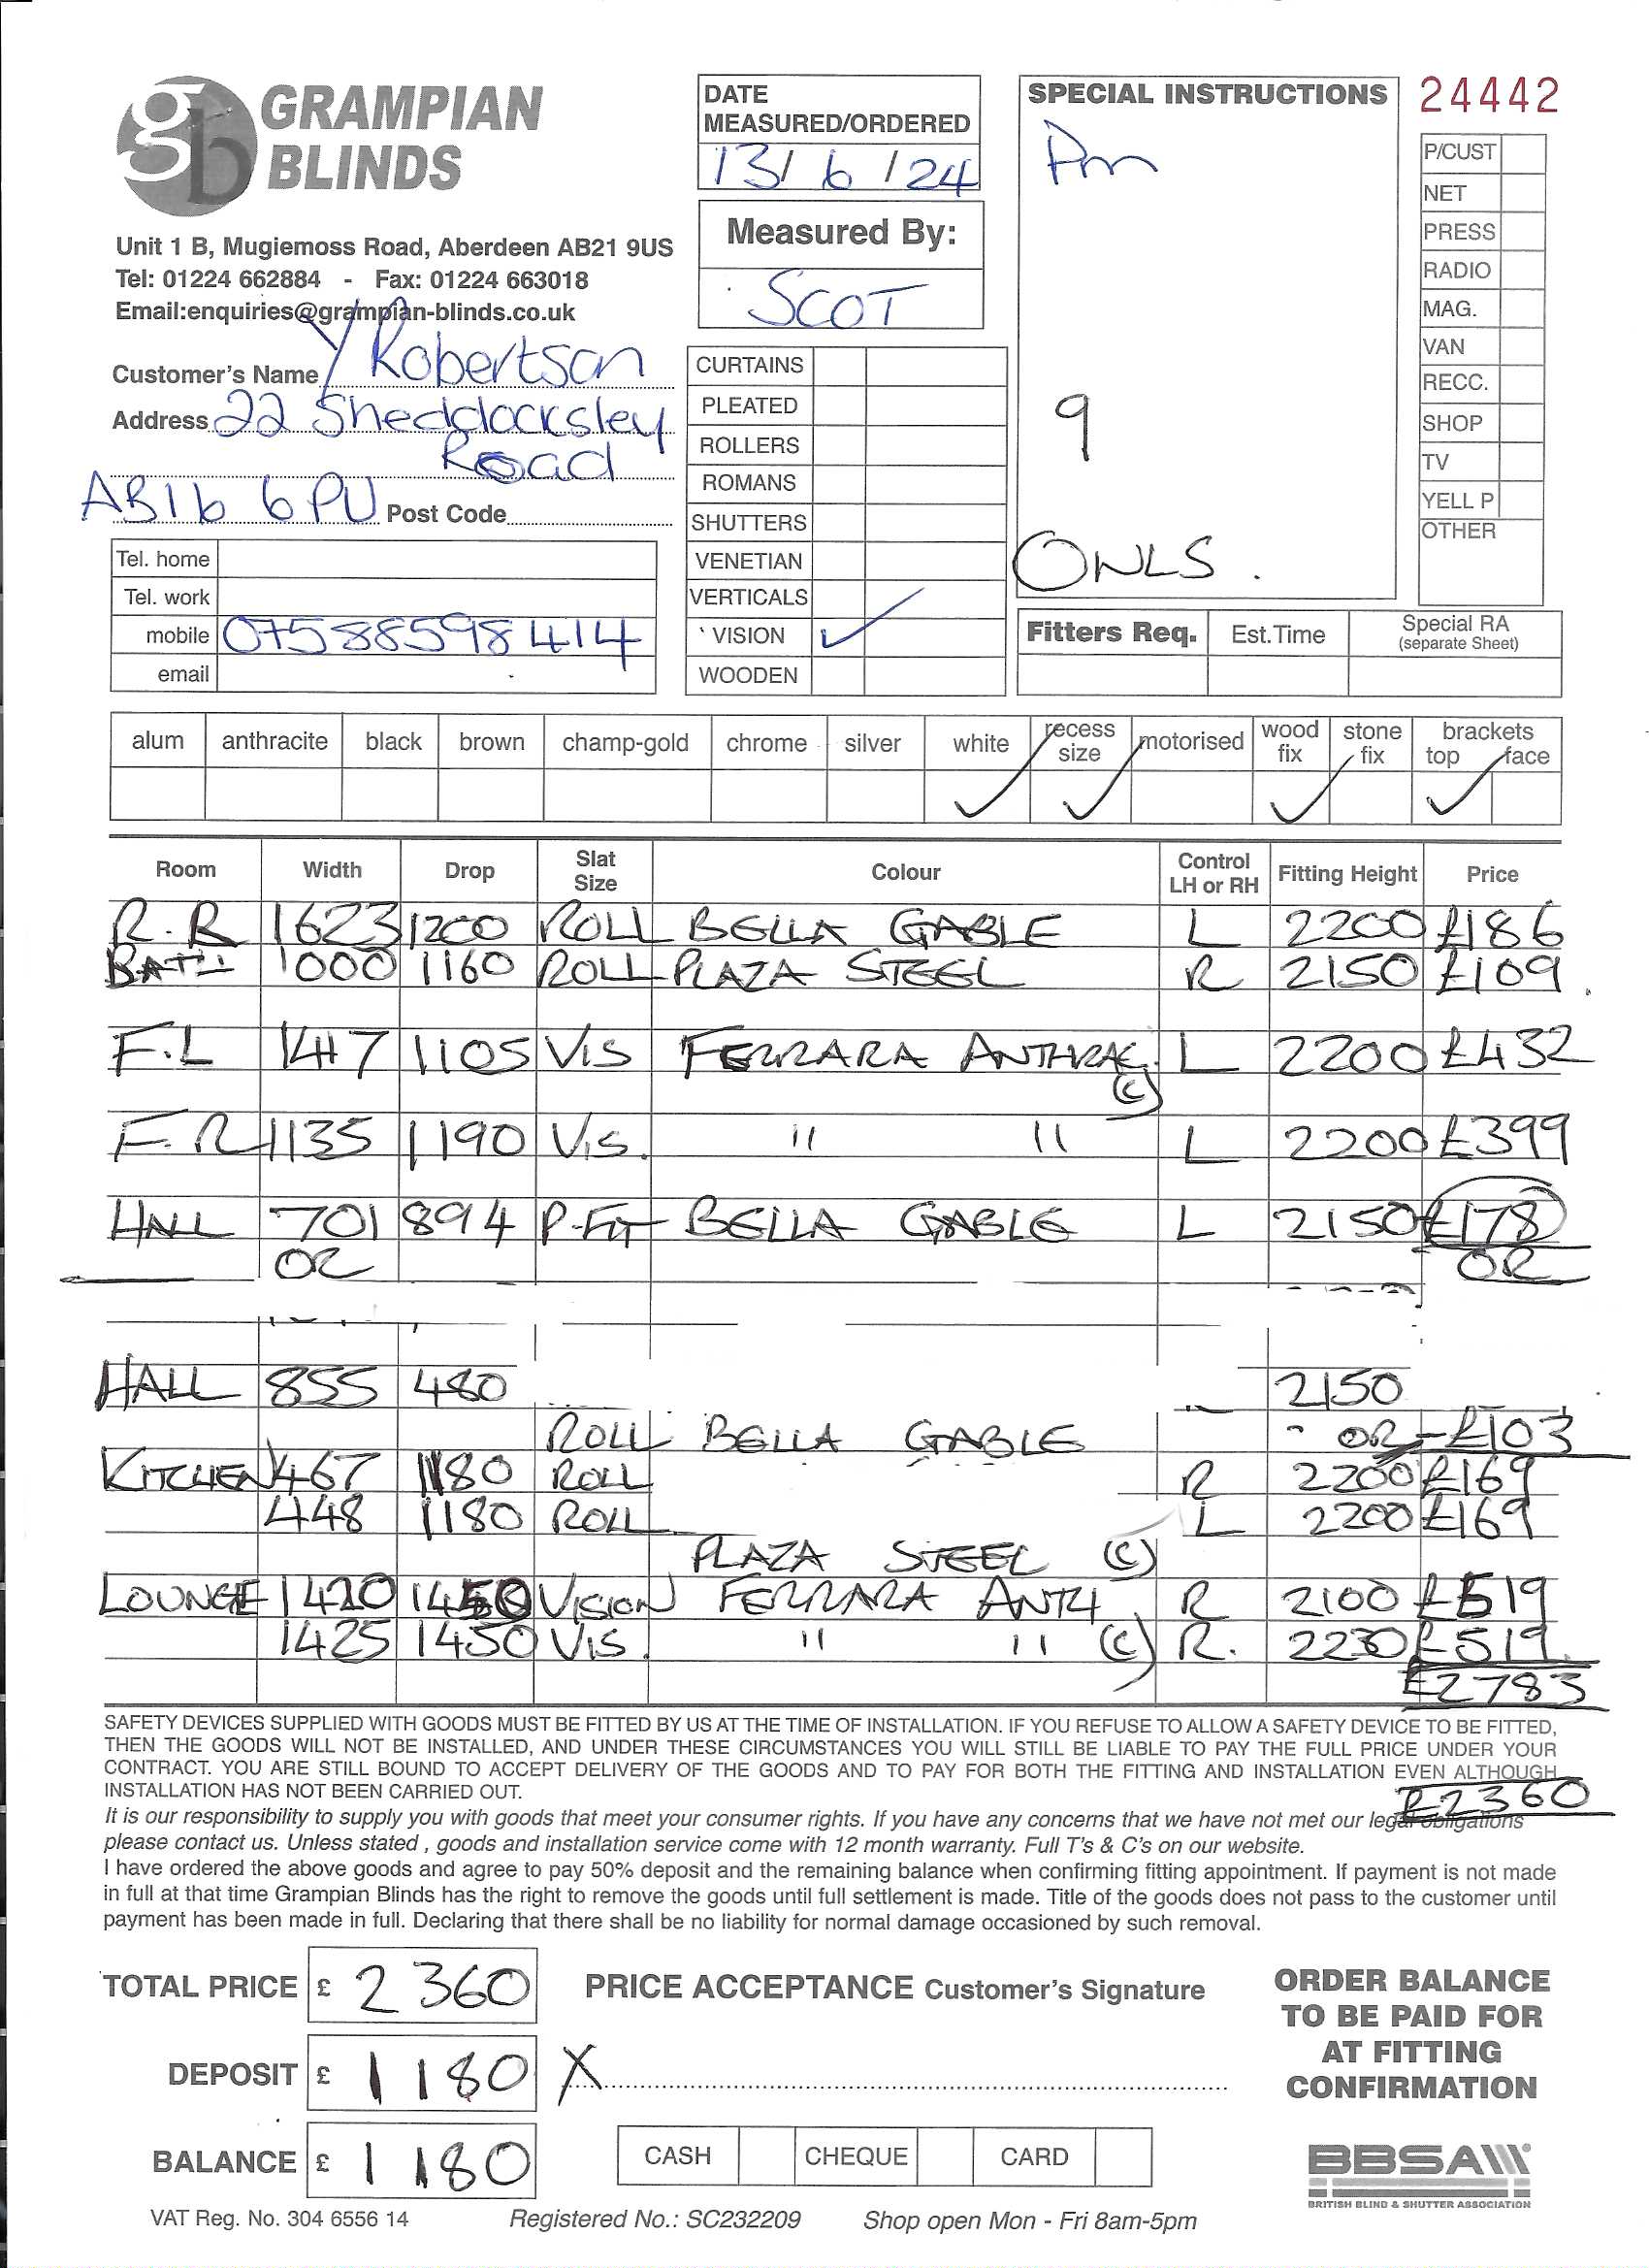 GRAMPIAN BLINDS
Unit 1 B, Mugiemoss Road, Aberdeen AB21 9US
Tel: 01224 662884 - Fax: 01224 663018
Email:enquiries@grampian-blinds.co.uk
Customer's Name Y Robertson
Address 22 Sheddocksley
Road
AB16 6PU Post Code
Tel. home
Tel. work
mobile 07588598414
email
DATE MEASURED/ORDERED
13/6/24
Measured By:
SCOT
CURTAINS
PLEATED
ROLLERS
ROMANS
SHUTTERS
VENETIAN
VERTICALS
VISION ✓
WOODEN
SPECIAL INSTRUCTIONS
Pm
9
ONLS.
24442
P/CUST
NET
PRESS
RADIO
MAG.
VAN
RECC.
SHOP
TV
YELL P
OTHER
Fitters Req. Est.Time Special RA (separate Sheet)
alum anthracite black brown champ-gold chrome silver white recess size motorised wood fix stone fix brackets top face
✓ ✓ ✓ ✓
Room Width Drop Slat Size Colour Control LH or RH Fitting Height Price
R.R 1623 1200 ROLL BELLA GABLE L 2200 £186
BATH 1000 1160 ROLL PLAZA STEEL R 2150 £109
F.L 1417 1105 VIS FERRARA ANTHRAC. L 2200 £432
(C)
F.R 1135 1190 VIS. " " L 2200 £399
HALL 701 894 P-FIT BELLA GABLE L 2150 £178
OR OR
HALL 855 480 2150
ROLL BELLA GABLE - OR - £103
KITCHEN 467 1180 ROLL R 2200 £169
448 1180 ROLL L 2200 £169
PLAZA STEEL (C)
LOUNGE 1420 1450 VISION FERRARA ANTH R 2100 £519
1425 1450 VIS. " " (C) R. 2230 £519
£2783
SAFETY DEVICES SUPPLIED WITH GOODS MUST BE FITTED BY US AT THE TIME OF INSTALLATION. IF YOU REFUSE TO ALLOW A SAFETY DEVICE TO BE FITTED,
THEN THE GOODS WILL NOT BE INSTALLED, AND UNDER THESE CIRCUMSTANCES YOU WILL STILL BE LIABLE TO PAY THE FULL PRICE UNDER YOUR
CONTRACT. YOU ARE STILL BOUND TO ACCEPT DELIVERY OF THE GOODS AND TO PAY FOR BOTH THE FITTING AND INSTALLATION EVEN ALTHOUGH
INSTALLATION HAS NOT BEEN CARRIED OUT.
£2360
It is our responsibility to supply you with goods that meet your consumer rights. If you have any concerns that we have not met our legal obligations
please contact us. Unless stated , goods and installation service come with 12 month warranty. Full T's & C's on our website.
I have ordered the above goods and agree to pay 50% deposit and the remaining balance when confirming fitting appointment. If payment is not made
in full at that time Grampian Blinds has the right to remove the goods until full settlement is made. Title of the goods does not pass to the customer until
payment has been made in full. Declaring that there shall be no liability for normal damage occasioned by such removal.
TOTAL PRICE £ 2360
DEPOSIT £ 1180
BALANCE £ 1180
PRICE ACCEPTANCE Customer's Signature
X
CASH CHEQUE CARD
ORDER BALANCE
TO BE PAID FOR
AT FITTING
CONFIRMATION
BBSA
BRITISH BLIND & SHUTTER ASSOCIATION
VAT Reg. No. 304 6556 14 Registered No.: SC232209 Shop open Mon - Fri 8am-5pm